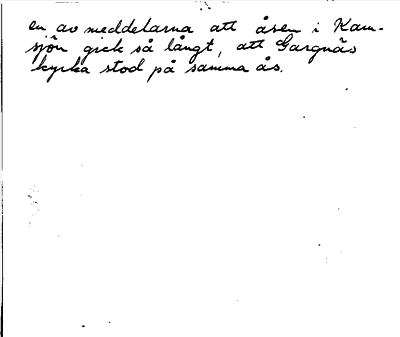 en av meddelarna att åsen i Kam-
sjön gick så långt, att Gargnäs
kyrka stod på samma ås.